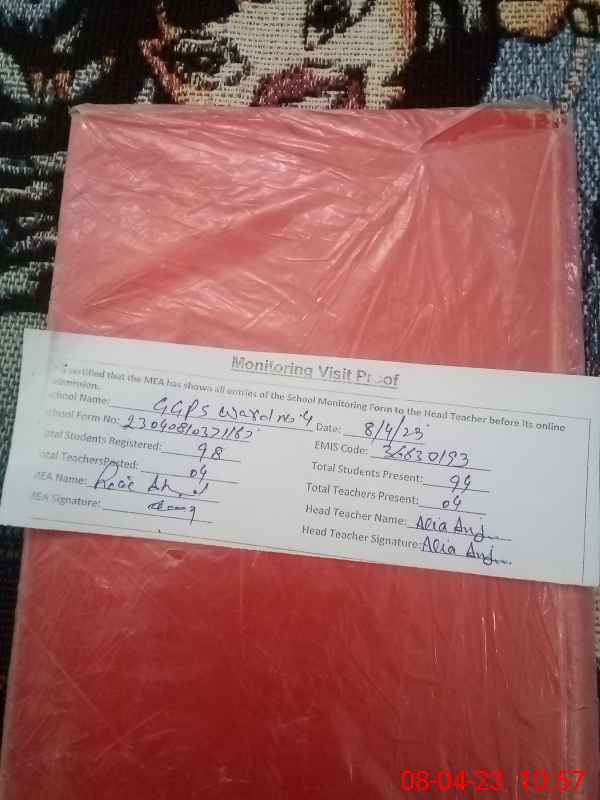 Monitoring Visit Proof
certified that the MEA has shown all entries of the School Monitoring Form to the Head Teacher before its online
School Name: GGPS Ward no 4 Date: 8/4/23
School Form No: EMIS Code: 36630193
Total Students Registered: 98 Total Students Present: 94
Total TeachersPosted: 04 Total Teachers Present: 04
MEA Name: Head Teacher Name: Alia
MEA Signature: Head Teacher Signature: Alia
08-04-23 10:57